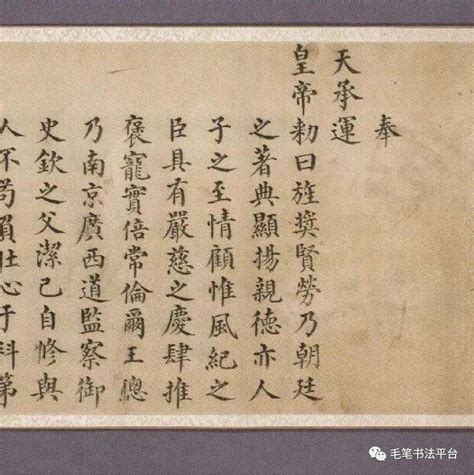 奉
天承運
皇帝勑曰旌奬賢勞乃朝廷
之著典顯揚親德亦人
子之至情顧惟風紀之
臣具有嚴慈之慶肆推
褒寵實倍常倫爾王總
乃南京廣西道監察御
史欽之父潔己自修與
人不苟負壯心于科第
毛笔书法平台